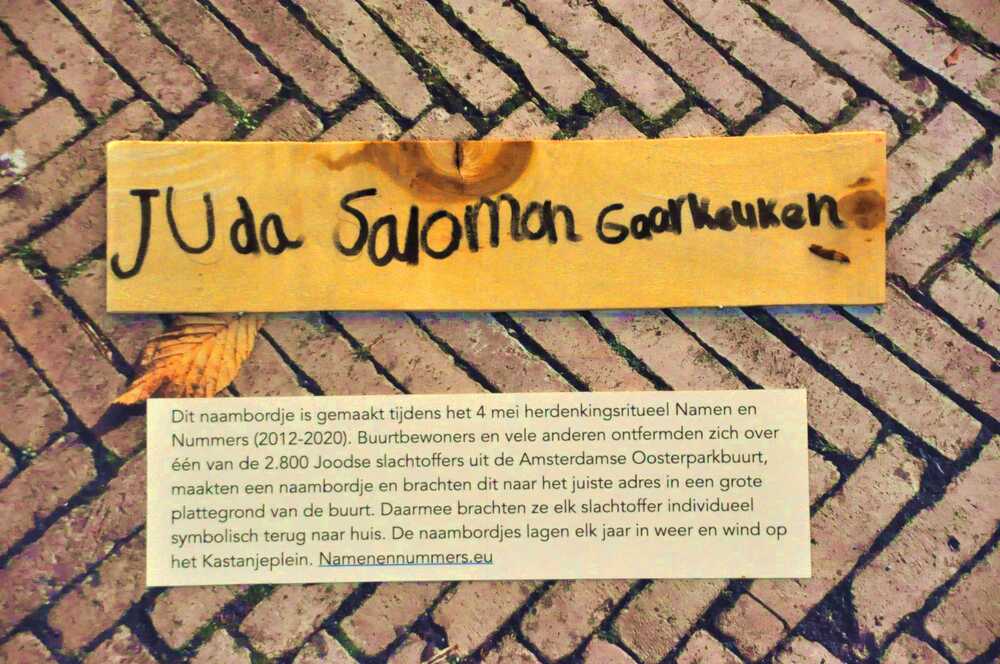 JUda Salomon Gaarkeuken
Dit naambordje is gemaakt tijdens het 4 mei herdenkingsritueel Namen en
Nummers (2012-2020). Buurtbewoners en vele anderen ontfermden zich over
één van de 2.800 Joodse slachtoffers uit de Amsterdamse Oosterparkbuurt,
maakten een naambordje en brachten dit naar het juiste adres in een grote
plattegrond van de buurt. Daarmee brachten ze elk slachtoffer individueel
symbolisch terug naar huis. De naambordjes lagen elk jaar in weer en wind op
het Kastanjeplein. Namenennummers.eu